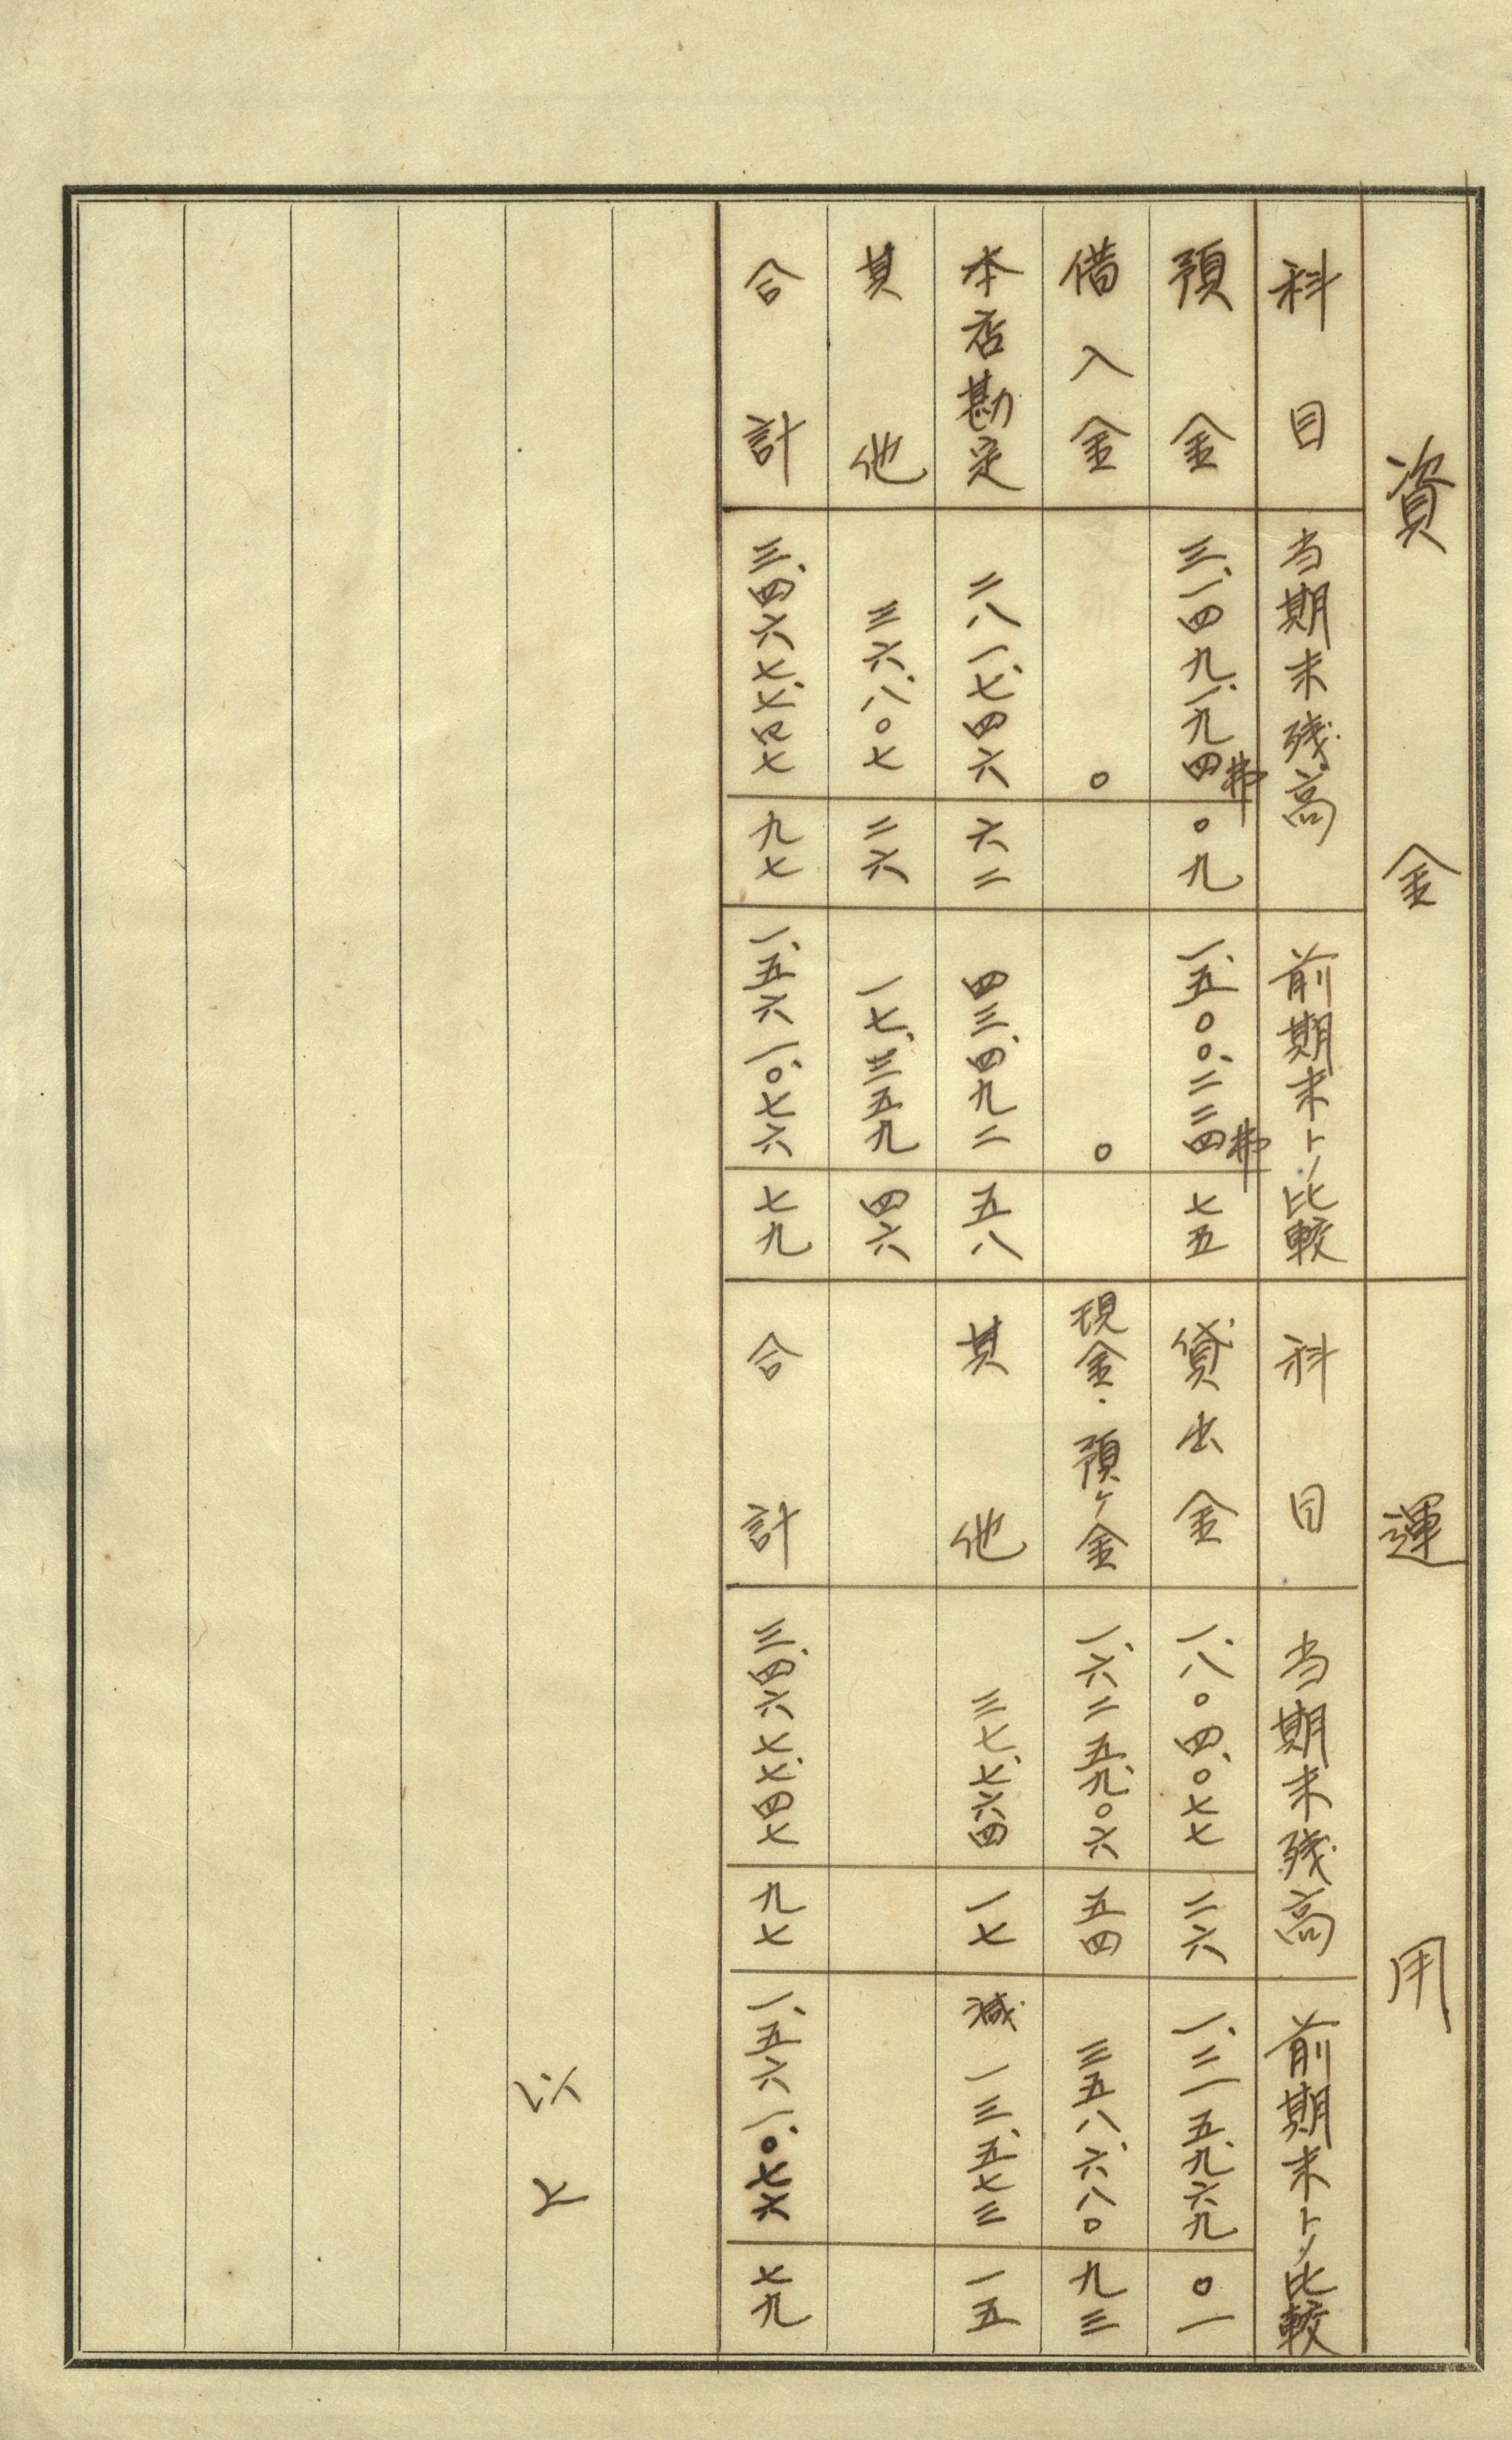 資金 運用
科目 当期末残高 前期末トノ比較 科目 当期末残高 前期末トノ比較
預金 三、一四九、一九四弗 〇九 一、五〇〇、二二四弗 七五 貸出金 一、八〇四、〇七七 二六 一、二一五、九六九 〇一
借入金 〇 〇 現金・預ケ金 一、六二五、九〇六 五四 三五八、六八〇 九三
本店勘定 二八一、七四六 六二 四三、四九二 五八 其他 三七、七六四 一七 減 一三、五七三 一五
其他 三六、八〇七 二六 一七、三五九 四六
合計 三、四六七、七四七 九七 一、五六一、〇七六 七九 合計 三、四六七、七四七 九七 一、五六一、〇七六 七九
以上